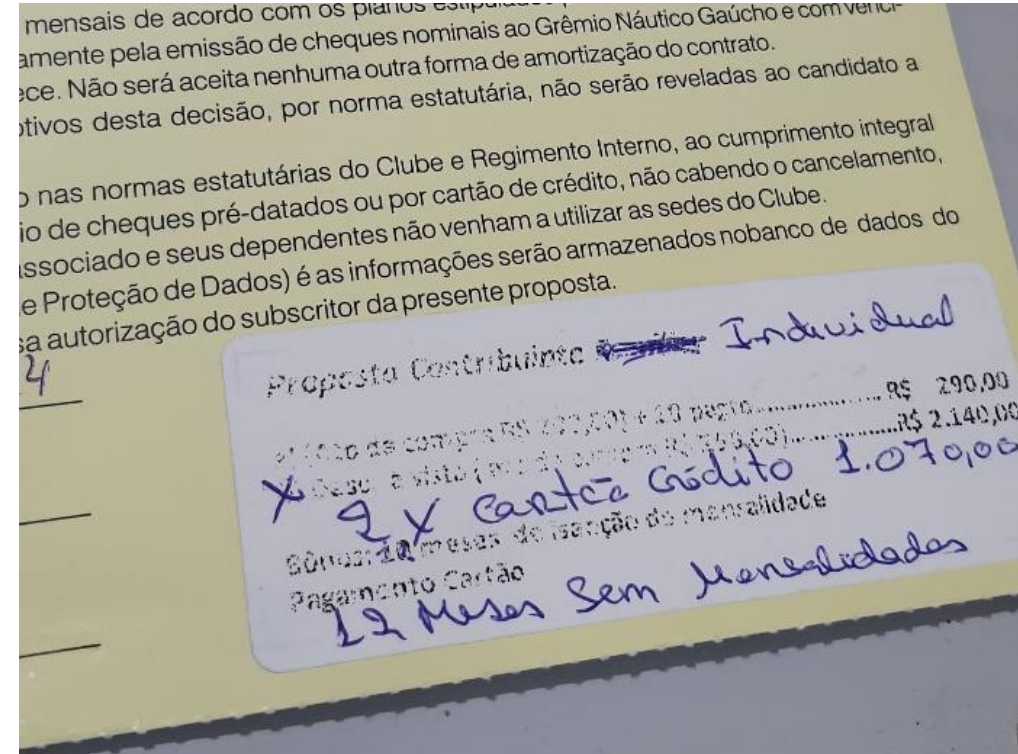 mensais de acordo com os planos
amente pela emissão de cheques nominais ao Grêmio Náutico Gaúcho e com venci-
ece. Não será aceita nenhuma outra forma de amortização do contrato.
otivos desta decisão, por norma estatutária, não serão reveladas ao candidato a
o nas normas estatutárias do Clube e Regimento Interno, ao cumprimento integral
io de cheques pré-datados ou por cartão de crédito, não cabendo o cancelamento,
associado e seus dependentes não venham a utilizar as sedes do Clube.
e Proteção de Dados) é as informações serão armazenados nobanco de dados do
sa autorização do subscritor da presente proposta.
4
Proposta Contribuinte Individual
de compra R$ + 10 R$ 290,00
X R$ 2.140,00
2 X Cartão Crédito 1.070,00
Bônus: 12 meses de isenção de mensalidade
Pagamento Cartão
12 Meses Sem Mensalidades